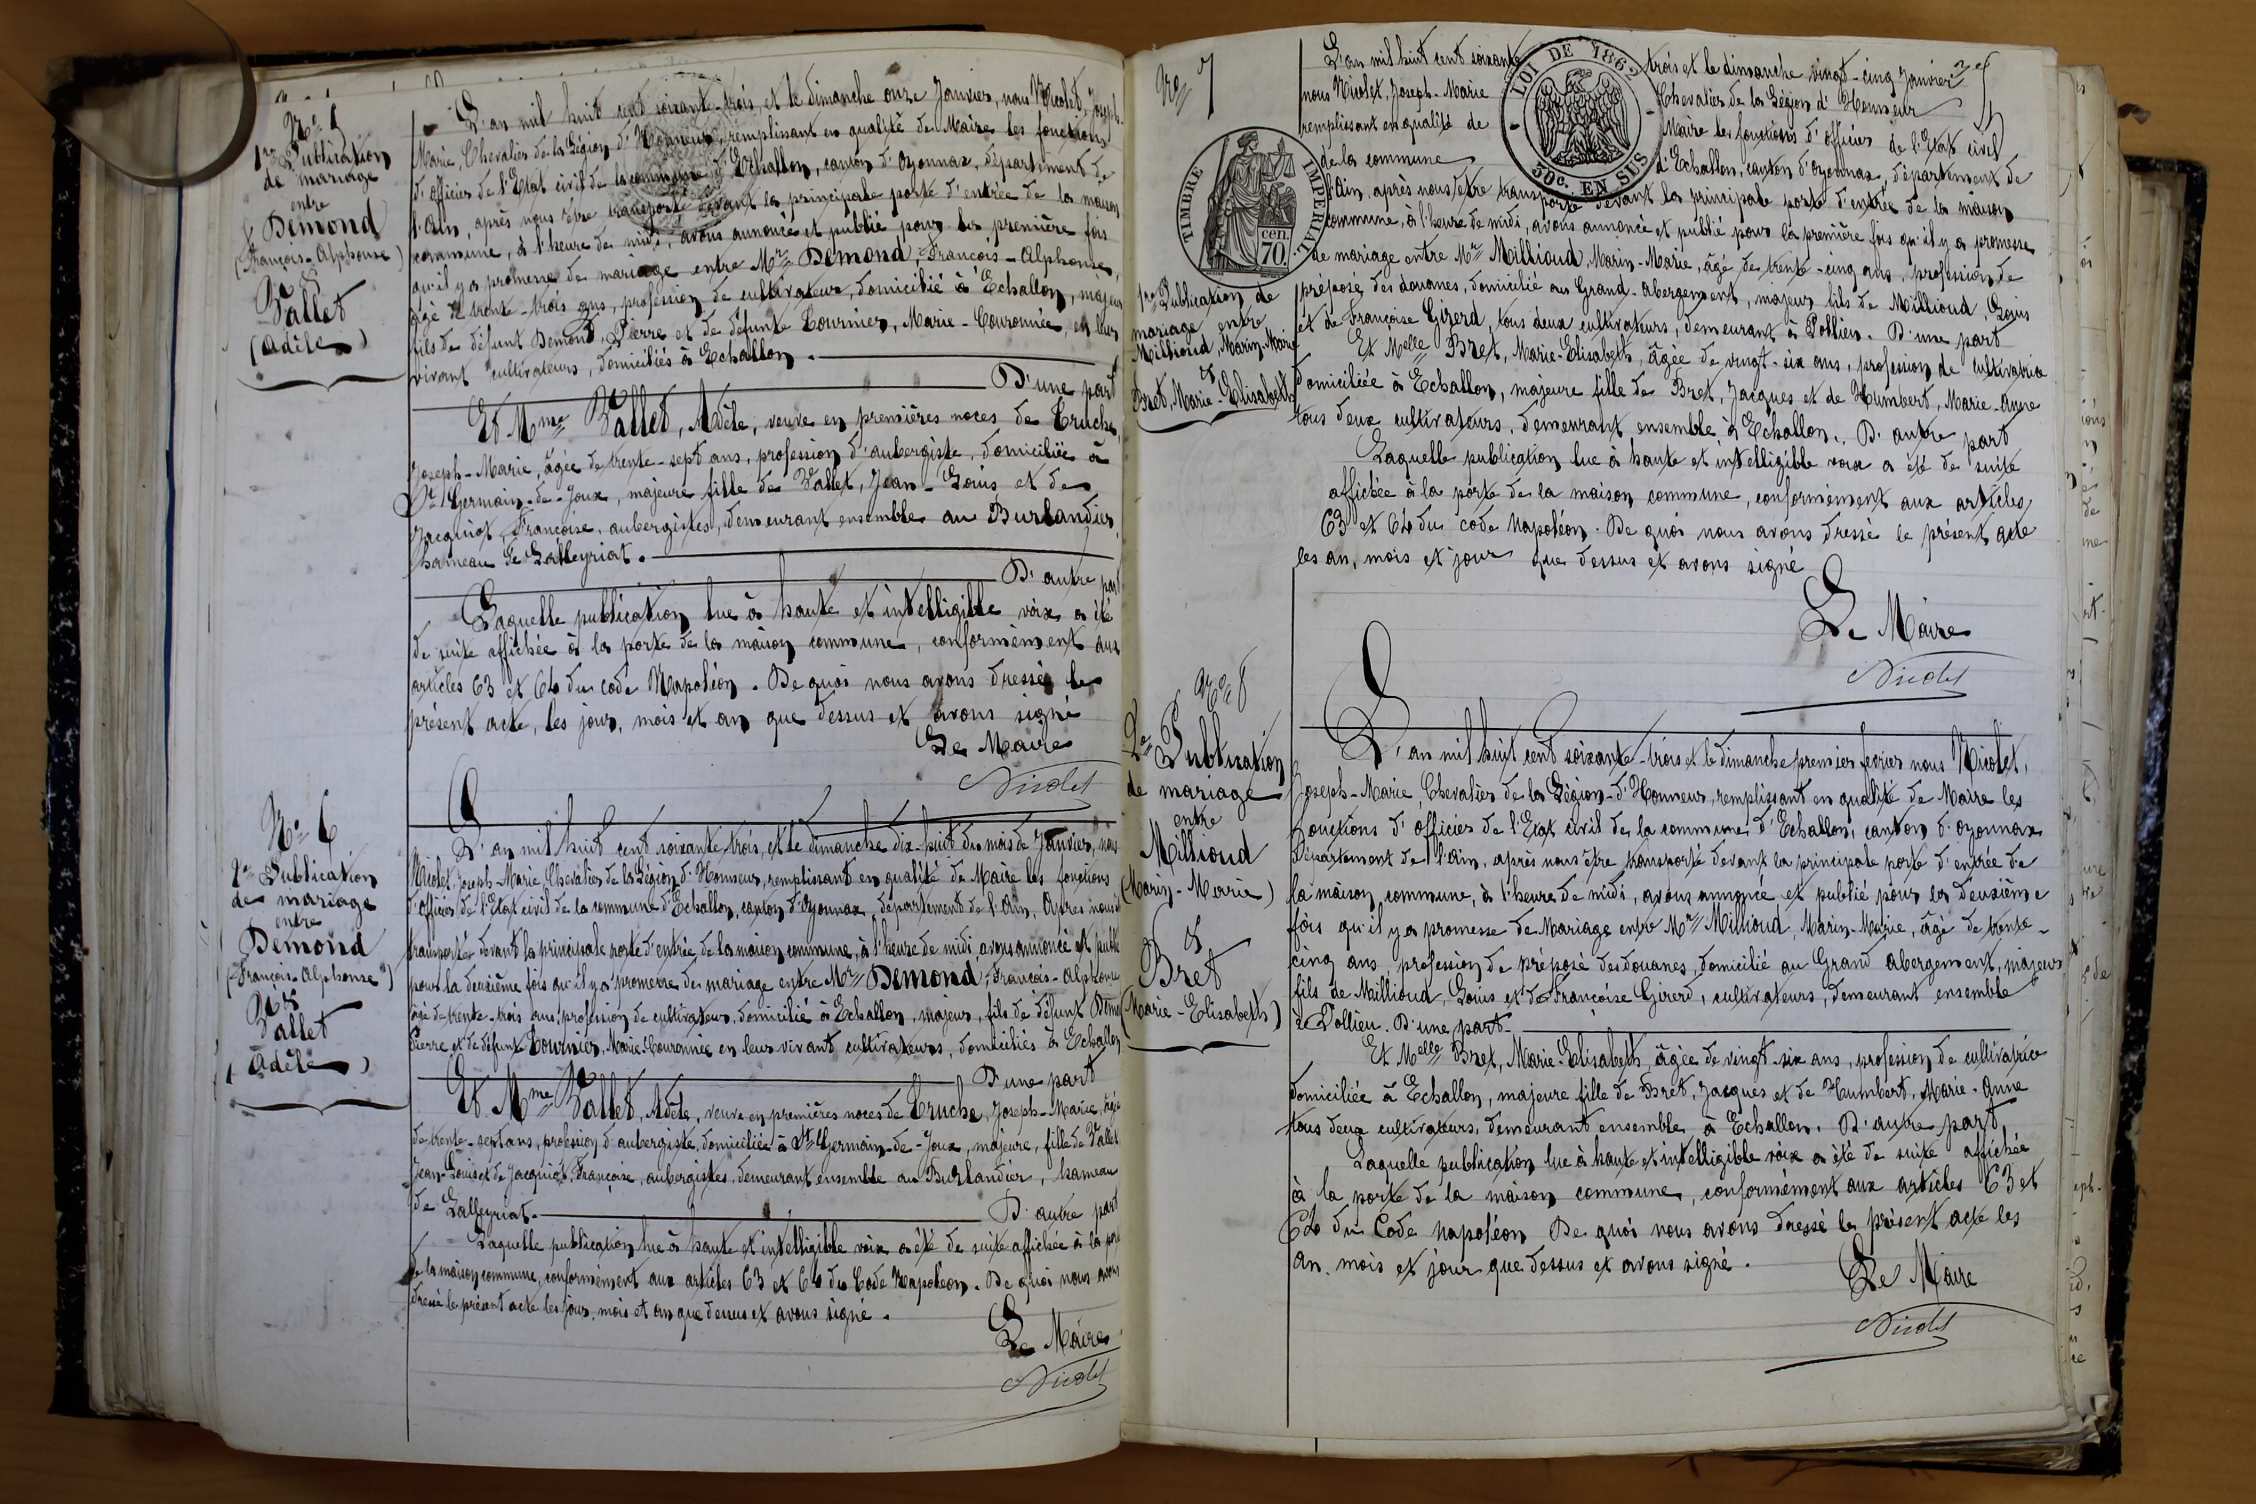 No 5
1re Publication
de mariage
entre
Demond
(François-Alphonse)
&
Vallet
(Adèle)
L'an mil huit cent soixante-trois, et le dimanche onze Janvier, nous Nicolet, Joseph-
Marie, Chevalier de la Légion d'Honneur, remplissant en qualité de Maire les fonctions
d'officier de l'Etat civil de la commune d'Echallon, canton d'Oyonnax, département de
l'Ain, après nous être transporté devant la principale porte d'entrée de la maison
commune, à l'heure de midi, avons annoncé et publié pour la première fois
qu'il y a promesse de mariage entre Mr Demond, François-Alphonse,
âgé de trente-trois ans, profession de cultivateur, domicilié à Echallon, majeur
fils de défunt Demond, Pierre et de défunte Tournier, Marie-Couronnée, en leur
vivant cultivateurs, domiciliés à Echallon.
D'une part
Et Mme Vallet, Adèle, veuve en premières noces de Cruche,
Joseph-Marie, âgée de trente-sept ans, profession d'aubergiste, domiciliée à
St Germain-de-Joux, majeure fille de Vallet, Jean-Louis et de
Jacquiot, Françoise, aubergistes, demeurant ensemble au Burlandier
hameau de Lalleyriat.
D'autre part
Laquelle publication lue à haute et intelligible voix a été
de suite affichée à la porte de la maison commune, conformément aux
articles 63 et 64 du code Napoléon. De quoi nous avons dressé le
présent acte, les jour, mois et an que dessus et avons signé
Le Maire
Nicolet
No 6
2e Publication
de mariage
entre
Demond
(François-Alphonse)
&
Vallet
(Adèle)
L'an mil huit cent soixante-trois, et le dimanche dix-huit du mois de Janvier, nous
Nicolet, Joseph-Marie, Chevalier de la Légion d'Honneur, remplissant en qualité de Maire les fonctions
d'officier de l'Etat civil de la commune d'Echallon, canton d'Oyonnax, département de l'Ain, Après nous être
transporté devant la principale porte d'entrée de la maison commune, à l'heure de midi, avons annoncé et publié
pour la deuxième fois qu'il y a promesse de mariage entre Mr Demond, François-Alphonse
âgé de trente-trois ans, profession de cultivateur, domicilié à Echallon, majeur, fils de défunt Demond
Pierre et de défunte Tournier, Marie-Couronnée en leur vivant cultivateurs, domiciliés à Echallon
D'une part
Et Mme Vallet, Adèle, veuve en premières noces de Cruche, Joseph-Marie, âgée
de trente-sept ans, profession d'aubergiste, domiciliée à St Germain-de-Joux, majeure, fille de Vallet
Jean-Louis et de Jacquiot, Françoise, aubergistes, demeurant ensemble au Burlandier, hameau
de Lalleyriat.
D'autre part
Laquelle publication lue à haute et intelligible voix a été de suite affichée à la porte
de la maison commune, conformément aux articles 63 et 64 du Code Napoléon. De quoi nous avons
dressé le présent acte les jour, mois et an que dessus et avons signé.
Le Maire
Nicolet
No 7
1re Publication de
mariage entre
Millioud, Marin-Marie
&
Bret, Marie-Elisabeth
TIMBRE IMPERIAL
70 cen.
LOI DE 1862
50c. EN SUS
L'an mil huit cent soixante trois et le dimanche vingt-cinq Janvier
nous Nicolet, Joseph-Marie Chevalier de la Légion d'Honneur
remplissant en qualité de Maire les fonctions d'officier de l'Etat civil
de la commune d'Echallon, canton d'Oyonnax, département de
l'Ain, après nous être transporté devant la principale porte d'entrée de la maison
commune, à l'heure de midi, avons annoncé et publié pour la première fois qu'il y a promesse
de mariage entre Mr Millioud, Marin-Marie, âgé de trente-cinq ans, profession de
préposé des douanes, domicilié au Grand-Abergement, majeur fils de Millioud, Louis
et de Françoise Girerd, tous deux cultivateurs, demeurant à Pollieu. D'une part
Et Melle Bret, Marie-Elisabeth, âgée de vingt-six ans, profession de cultivatrice
domiciliée à Echallon, majeure fille de Bret, Jacques et de Humbert, Marie-Anne
tous deux cultivateurs, demeurant ensemble à Echallon. D'autre part
Laquelle publication lue à haute et intelligible voix a été de suite
affichée à la porte de la maison commune, conformément aux articles
63 et 64 du code Napoléon. De quoi nous avons dressé le présent acte
les an, mois et jour que dessus et avons signé
Le Maire
Nicolet
No 8
2e Publication
de mariage
entre
Millioud
(Marin-Marie)
&
Bret
(Marie-Elisabeth)
L'an mil huit cent soixante-trois et le dimanche premier février nous Nicolet,
Joseph-Marie, Chevalier de la Légion-d'Honneur, remplissant en qualité de Maire les
fonctions d'officier de l'Etat civil de la commune d'Echallon, canton d'Oyonnax
Département de l'Ain, après nous être transporté devant la principale porte d'entrée de
la maison commune, à l'heure de midi, avons annoncé et publié pour la deuxième
fois qu'il y a promesse de Mariage entre Mr Millioud, Marin-Marie, âgé de trente-
cinq ans, profession de préposé des douanes, domicilié au Grand abergement, majeur
fils de Millioud, Louis et de Françoise Girerd, cultivateurs, demeurant ensemble
à Pollieu. D'une part
Et Melle Bret, Marie-Elisabeth, âgée de vingt-six ans, profession de cultivatrice
domiciliée à Echallon, majeure fille de Bret, Jacques et de Humbert, Marie-Anne
tous deux cultivateurs, demeurant ensemble à Echallon. D'autre part
Laquelle publication lue à haute et intelligible voix a été de suite affichée
à la porte de la maison commune, conformément aux articles 63 et
64 du Code Napoléon De quoi nous avons dressé le présent acte les
an, mois et jour que dessus et avons signé.
Le Maire
Nicolet